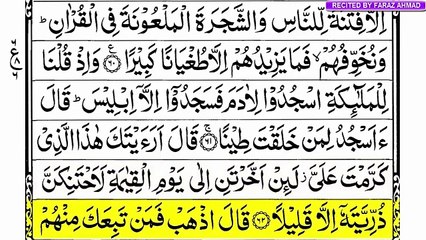 RECITED BY FARAZ AHMAD
اِلَّا فِتۡنَةً لِّلنَّاسِ وَالشَّجَرَةَ الۡمَلۡعُوۡنَةَ فِى الۡقُرۡاٰنِ ؕ
وَنُخَوِّفُهُمۡ ۙ فَمَا يَزِيۡدُهُمۡ اِلَّا طُغۡيَانًا كَبِيۡرًا ﴿۶۰﴾ وَاِذۡ قُلۡنَا
لِلۡمَلٰٓئِكَةِ اسۡجُدُوۡا لِاٰدَمَ فَسَجَدُوۡۤا اِلَّاۤ اِبۡلِيۡسَ ؕ قَالَ
ءَاَسۡجُدُ لِمَنۡ خَلَقۡتَ طِيۡنًا ﴿۶۱﴾ قَالَ اَرَءَيۡتَكَ هٰذَا الَّذِىۡ
كَرَّمۡتَ عَلَىَّ ز لَئِنۡ اَخَّرۡتَنِ اِلٰى يَوۡمِ الۡقِيٰمَةِ لَاَحۡتَنِكَنَّ
ذُرِّيَّتَهٗۤ اِلَّا قَلِيۡلًا ﴿۶۲﴾ قَالَ اذۡهَبۡ فَمَنۡ تَبِعَكَ مِنۡهُمۡ